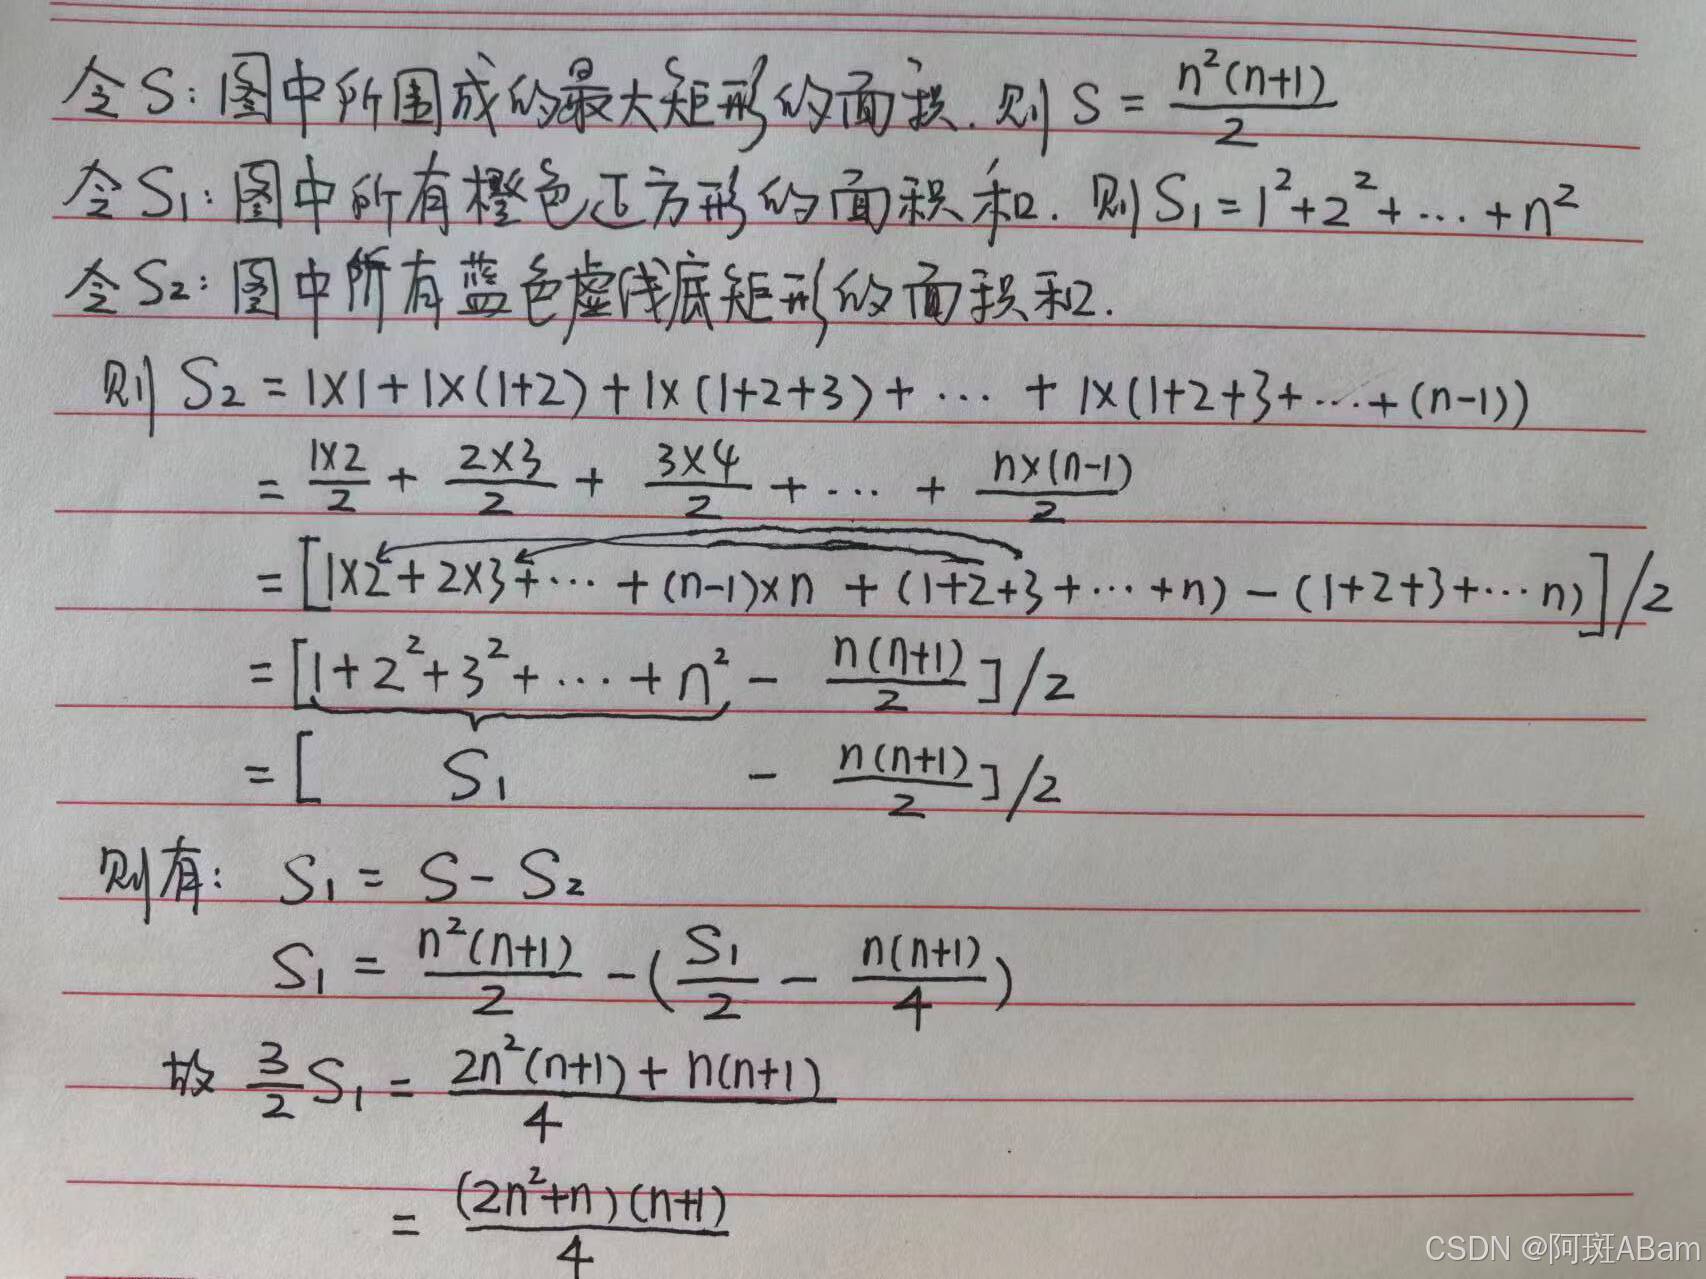 令S:图中所围成的最大矩形的面积.则 S = n²(n+1)/2
令S₁:图中所有橙色正方形的面积和.则S₁=1²+2²+…+n²
令S₂:图中所有蓝色虚线底矩形的面积和.
则 S₂ = 1×1+1×(1+2)+1×(1+2+3)+ … + 1×(1+2+3+…+(n-1))
= 1×2/2 + 2×3/2 + 3×4/2 + … + n×(n-1)/2
= [1×2+2×3+… +(n-1)×n +(1+2+3+…+n)-(1+2+3+…n)]/2
= [1+2²+3²+…+n² - n(n+1)/2]/2
= [ S₁ - n(n+1)/2]/2
则有: S₁ = S - S₂
S₁ = n²(n+1)/2 -(S₁/2 - n(n+1)/4)
故 3/2 S₁ = 2n²(n+1)+n(n+1)/4
= (2n²+n)(n+1)/4
CSDN @阿斑ABam